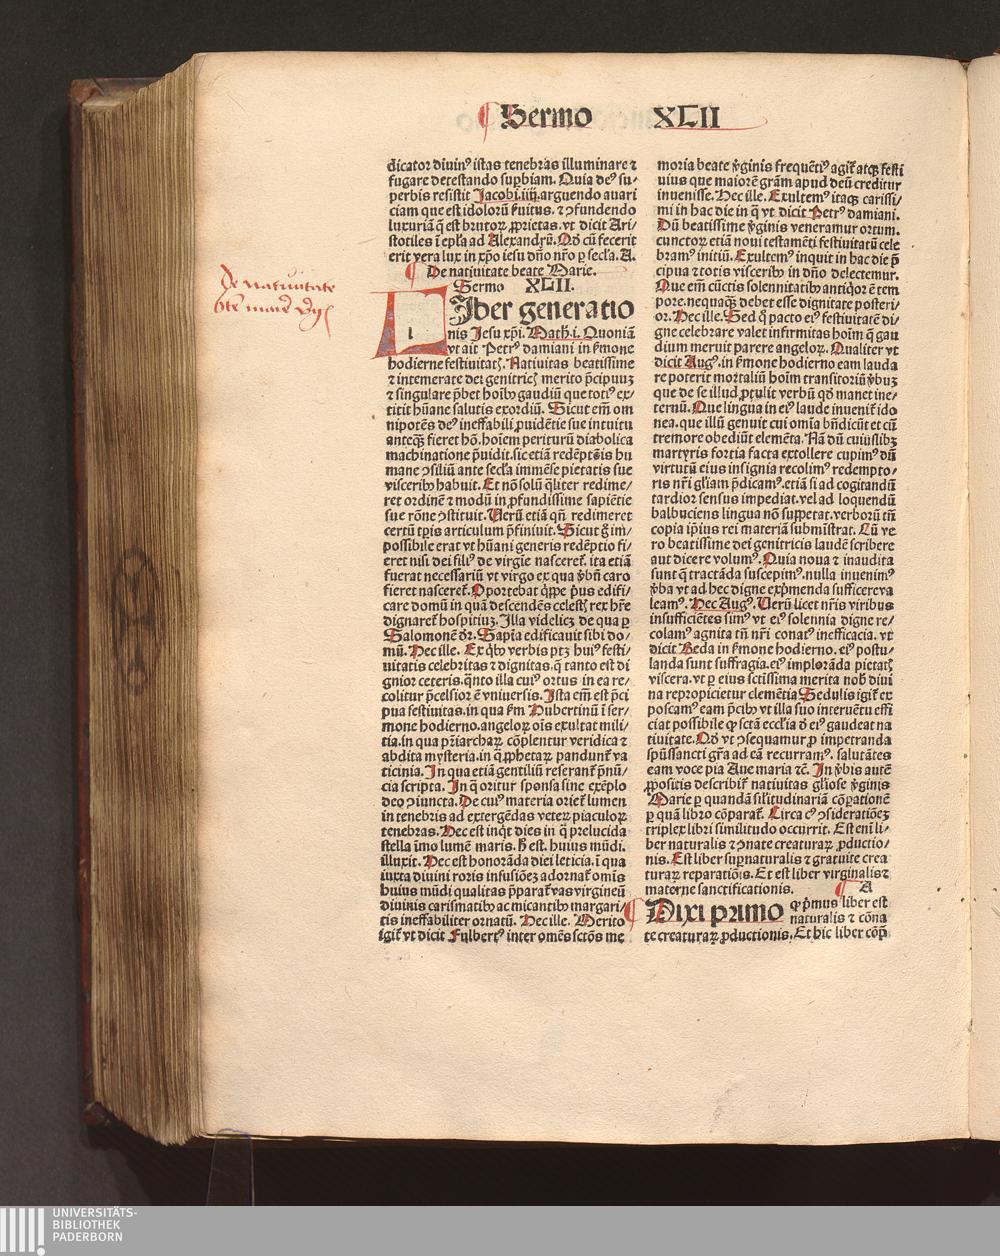 Sermo XLII
dicator diuinꝰ istas tenebras illuminare ⁊
fugare detestando suꝑbiam. Quia deꝰ su⸗
perbis resistit Jacobi.iiij.arguendo auari
ciam que est idoloꝝ ẜuitus. ⁊ ꝯfundendo
luxuriā q̄ est brutoꝝ ꝓprietas. vt dicit Ari⸗
stotiles ī epl̄a ad Alexandꝝ. Qd̓ cū fecerit
erit vera lux in xp̄o iesu dn̄o nr̄o ꝑ secl̄a. A.
De natiuitate beate Marie.
Sermo XLII.
De natiuitate
bte marie vgis
Liber generatio
nis Jesu xp̄i. Math̓.i. Quoniā
vt ait Petrꝰ damiani in ẜmone
hodierne festiuitatꝭ. Natiuitas beatissime
⁊ intemerate dei genitricꝭ merito p̄cipuuꝫ
⁊ singulare p̄bet hoībꝰ gaudiū que totiꝰ ex⸗
titit hūane salutis exordiū. Sicut em̄ om
nipotēs deꝰ ineffabili ꝓuidētie sue intuitu
anteꝙ̄ fieret hō. hoīem periturū diabolica
machinatione p̄uidit.sic etiā redēptōis hu
mane ꝯsiliū ante secl̄a immēse pietatis sue
visceribꝰ habuit. Et nō solū q̄liter redime⸗
ret ordinē ⁊ modū in ꝓfundissime sapiētie
sue rōne ꝯstituit. Verū etiā qn̄ redimeret
certū tꝑis articulum p̄finiuit. Sicut g̊ im⸗
possibile erat vt hūani generis redēptio fi⸗
eret nisi dei filiꝰ de virgīe nasceret̄. ita etiā
fuerat necessariū vt virgo ex qua v̓bū caro
fieret nasceret̄. Oportebat q̄ppe pͥus edifi⸗
care domū in quā descendēs celestꝭ rex hr̄e
dignaret̄ hospitiuꝫ. Illa videlicꝫ de qua ꝑ
Salomonē dr̄. Sapīa edificauit sibi do⸗
mū. Hec ille. Ex qͥbꝰ verbis ptꝫ huiꝰ festi⸗
uitatis celebritas ⁊ dignitas. q̄ tanto est di
gnior ceteris. qͣnto illa cuiꝰ ortus in ea re⸗
colitur p̄celsior ē vniuersis. Ista em̄ est p̄ci
pua festiuitas. in qua ẜm Hubertinū ī ser⸗
mone hodierno. angeloꝝ oīs exultat mili⸗
tia. in qua pr̄iarchaꝝ cōplentur veridica ⁊
abdita mysteria. in q̄ ꝓphetaꝝ pandunt̄ va
ticinia. In qua etiā gentiliū reserant̄ p̄nū⸗
cia scripta. In q̄ oritur sponsa sine exēplo
deo ꝯiuncta. De cuiꝰ materia oriet̄ lumen
in tenebris ad extergēdas veteꝝ piaculoꝝ
tenebras. Hec est inqͥt dies in q̄ prelucida
stella īmo lumē maris. h̓ est. huius mūdi.
illuxit. Hec est honorāda diei leticia. ī qua
iuxta diuini roris infusiōeꝫ adornat̄ oīmis
huius mūdi qualitas p̄parat̄ vas virgineū
diuinis carismatibꝰ ac micantibꝰ margari⸗
tis ineffabiliter ornatū. Hec ille. Merito
igit̄ vt dicit Fulbertꝰ inter omēs sctōs me
moria beate v̓ginis frequētiꝰ agit̄ atqꝫ festi
uius que maiorē grām apud deū creditur
inuenisse. Hec ille. Exultemꝰ itaqꝫ carissi⸗
mi in hac die in q̄ vt dicit Petrꝰ damiani.
Dū beatissime v̓ginis veneramur ortum.
cunctoꝝ etiā noui testamēti festiuitatū cele
bramꝰ initiū. Exultemꝰ inquit in hac die p̄
cipua ⁊ totis visceribꝰ in dn̄o delectemur.
Que em̄ cūctis solennitatibꝰ antiqͥor ē tem
pore. nequaꝙ̄ debet esse dignitate posteri⸗
or. Hec ille. Sed q̊ pacto eiꝰ festiuitatē di⸗
gne celebrare valet infirmitas hoīm q̄ gau
dium meruit parere angeloꝝ. Qualiter vt
dicit Augꝰ. in ẜmone hodierno eam lauda
re poterit mortaliū hoīm transitoriū v̓buꝫ
que de se illud ꝓtulit verbū qd̓ manet ine⸗
ternū. Que lingua in eiꝰ laude inuenit̄ ido
nea. que illū genuit cui omīa bn̄dicūt et cū
tremore obediūt elemēta. Nā dū cuiuslibꝫ
martyris fortia facta extollere cupimꝰ dū
virtutū eius insignia recolimꝰ redempto⸗
ris nr̄i gl̄iam p̄dicamꝰ. etiā si ad cogitandū
tardior sensus impediat. vel ad loquendū
balbuciens lingua nō suppetat. verborū tn̄
copia ip̄ius rei materiā submīstrat. Cū ve
ro beatissime dei genitricis laudē scribere
aut dicere volumꝰ. Quia noua ⁊ inaudita
sunt q̄ tractāda suscepimꝰ. nulla inuenimꝰ
v̓ba vt ad hec digne exp̄menda sufficere va
leamꝰ. Hec Augꝰ. Verū licet nr̄is viribus
insufficiētes simꝰ vt eiꝰ solennia digne re⸗
colamꝰ agnita tn̄ nr̄i conatꝰ inefficacia. vt
dicit Beda in ẜmone hodierno. eiꝰ postu⸗
landa sunt suffragia. eiꝰ implorāda pietatꝭ
viscera. vt ꝑ eius sctīssima merita nob̓ diui
na repropicietur clemētia. Sedulis igit̄ ex
poscamꝰ eam p̄cibꝰ vt illa suo interuētu effi
ciat possibile qͦ sctā eccl̄ia d̓ eiꝰ gaudeat na
tiuitate. Qd̓ vt ꝯsequamur ꝓ impetranda
spūssancti gr̄a ad eā recurramꝰ. salutātes
eam voce pia Aue maria ⁊c̄. In v̓bis autē
ꝓpositis describit̄ natiuitas gl̄iose v̓ginis
Marie ꝑ quandā sil̓itudinariā cōꝑationē
ꝑ quā libro cōparat̄. Circa cꝰ ꝯsideratiōeꝫ
triplex libri similitudo occurrit. Est enī li⸗
ber naturalis ⁊ ꝯnate creaturaꝝ ꝓductio⸗
nis. Est liber suꝑnaturalis ⁊ gratuite crea
turaꝝ reparatiōis. Et est liber virginalis ⁊
materne sanctificationis. A
Dixi primo ꝙ pͥmus liber est
naturalis ⁊ cōna
te creaturaꝝ ꝓductionis. Et hic liber cōp̄
UNIVERSITÄTS-
BIBLIOTHEK
PADERBORN